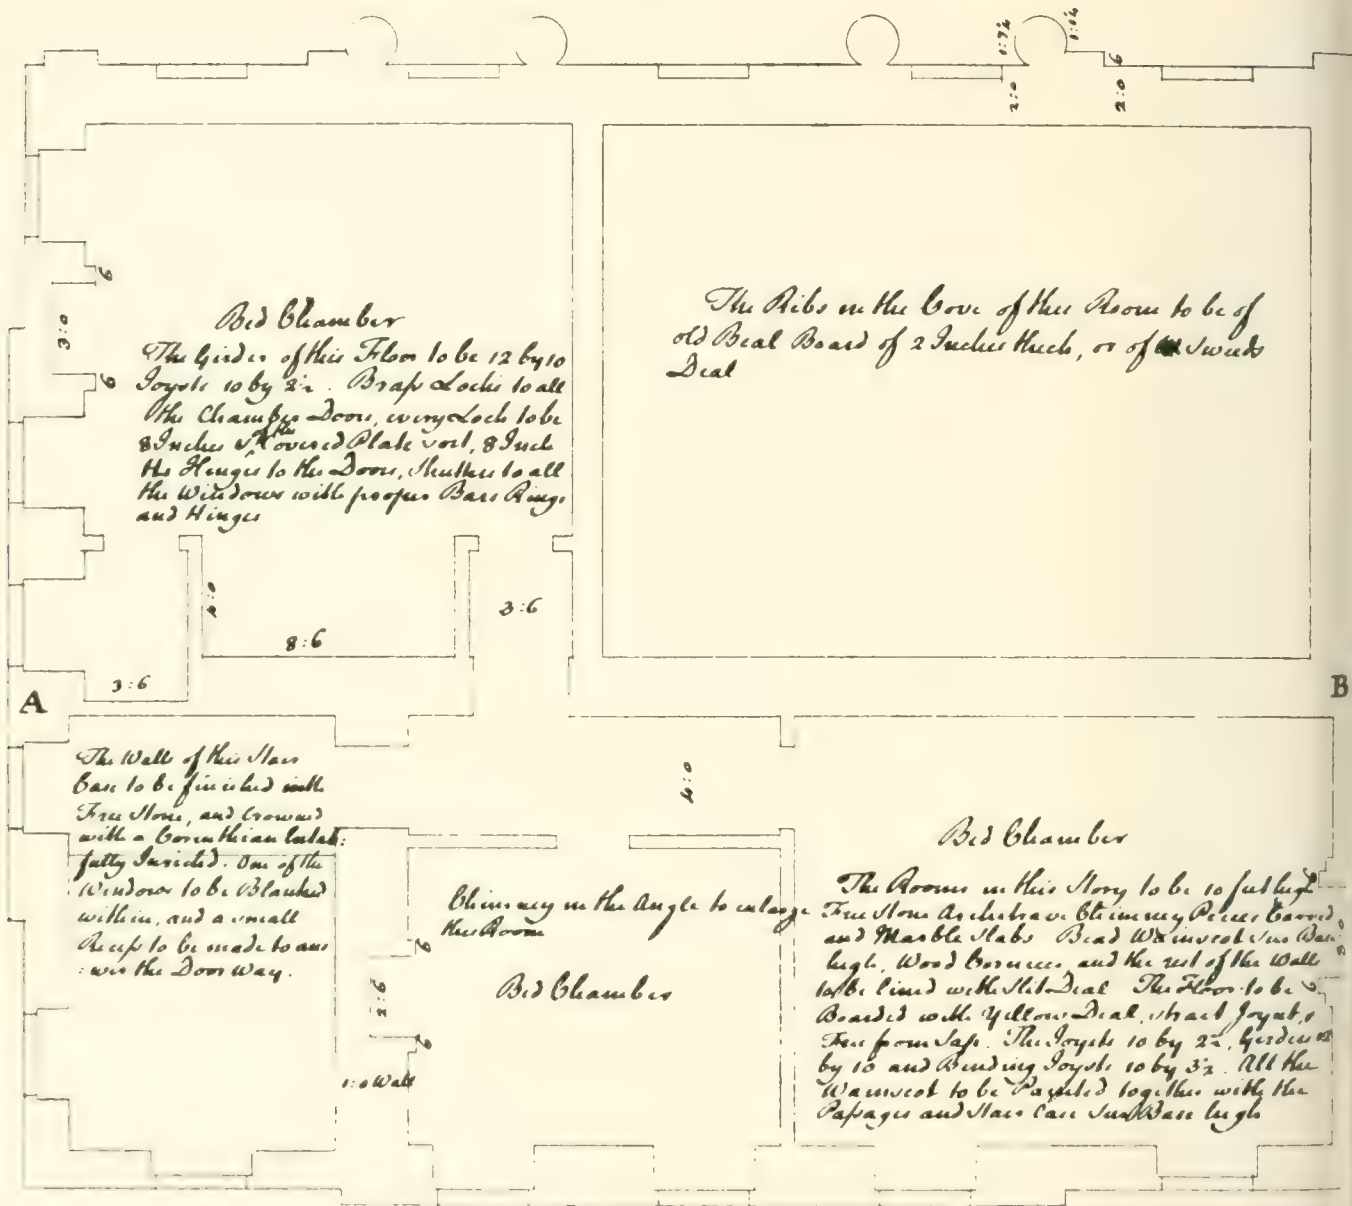 1:7½
1:1½
6
2:0
2:0
6
3:0
6
Bed Chamber
The Girder of this Floor to be 12 by 10
Joysts 10 by 2½. Brass Locks to all
the Chamber Doors, every Lock to be
8 Inches & of the Covered Plate sort, 8 Inch
H Hinges to the Doors, Shutters to all
the Windows with proper Bars Rings
and Hinges
The Ribs in the Cove of this Room to be of
old Beal Board of 2 Inches thick, or of Sweeds
Deal
4:0
8:6
3:6
3:6
A
B
The Walls of this Stair
Case to be finished with
Free Stone, and Crowned
with a Corinthian Entab:
fully Inriched. One of the
Windows to be Blanked
within, and a small
Recess to be made to ans
:wer the Door Way.
4:0
Chimney in the Angle to enlarge
this Room
Bed Chamber
6
2:6
6
1:0 Wall
Bed Chamber
The Rooms in this Story to be 10 feet high
Free Stone Architrave Chimney Pieces Carved
and Marble Slabs Bead Wainscot Sur Base
high, Wood Cornices, and the rest of the Walls
to be lined with Slit Deal The Floor to be
Boarded with Yellow Deal, strait Joynt, &
Free from Sap. The Joysts 10 by 2½, Girders 12
by 10 and Binding Joysts 10 by 3½. All the
Wainscot to be Paynted together with the
Passages and Stair Case Sur Base high